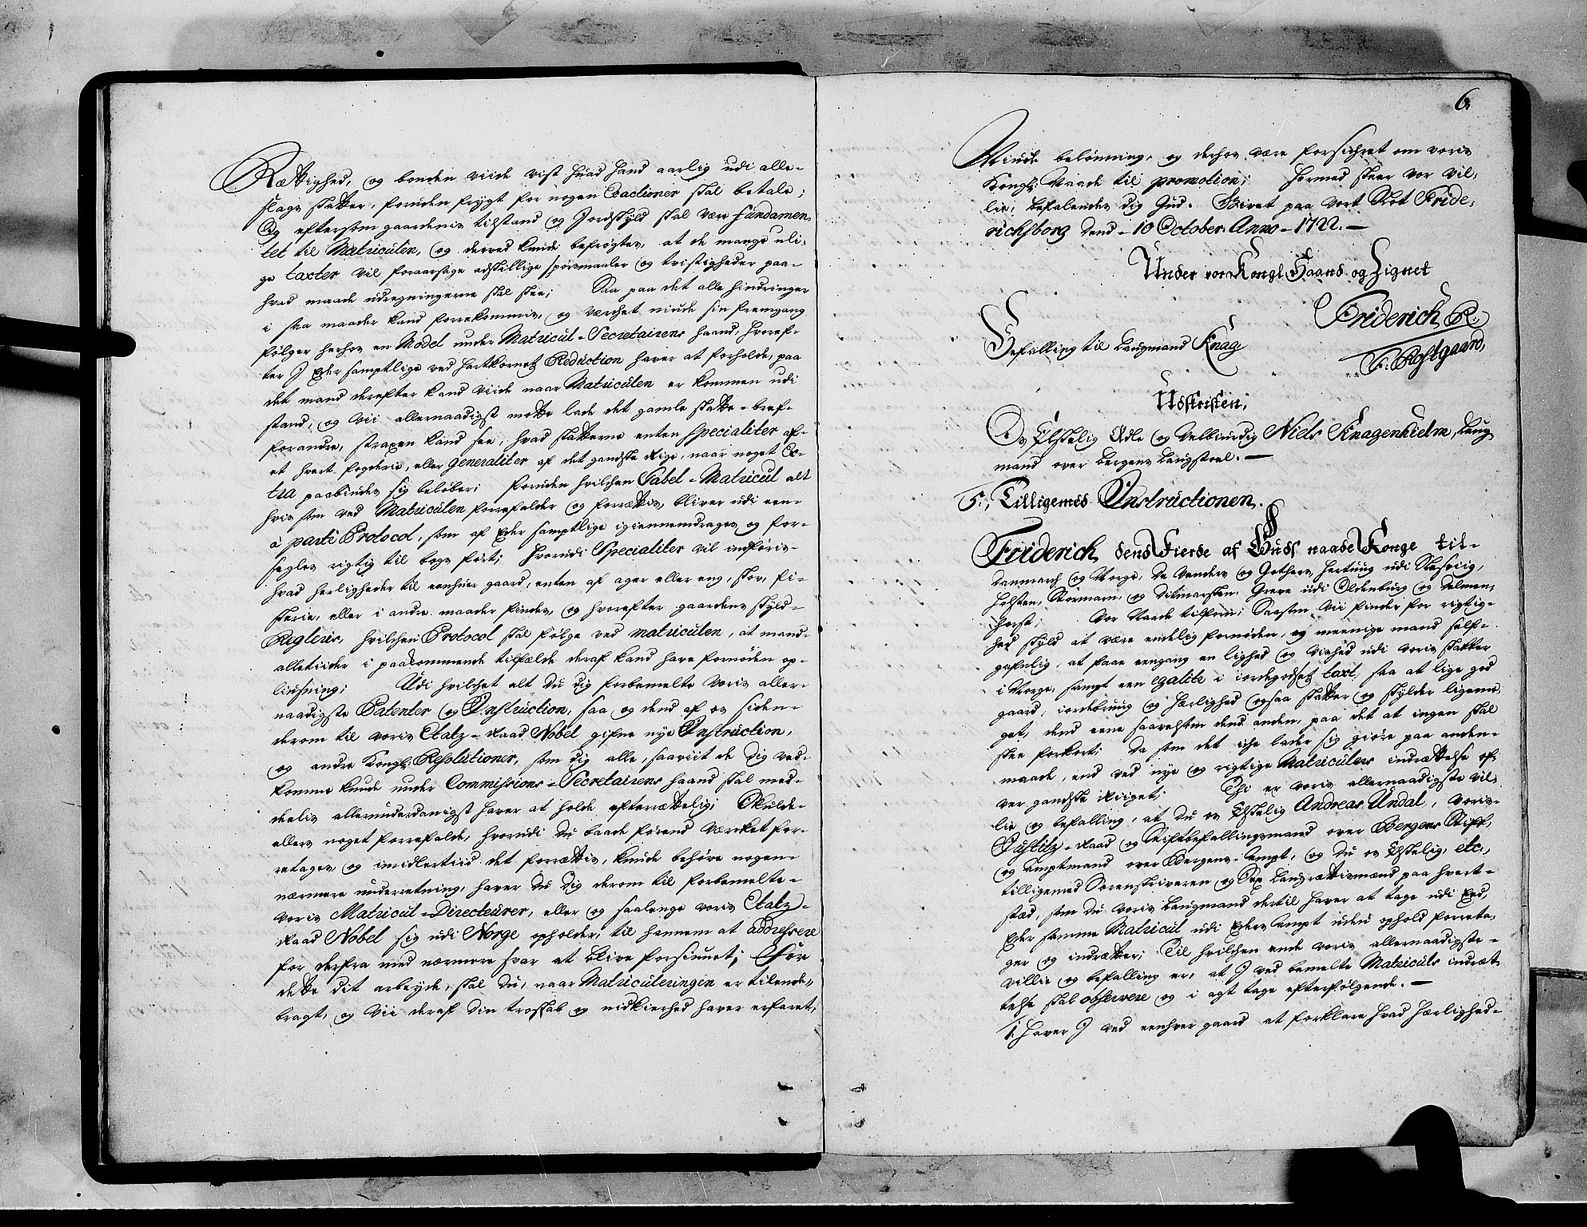 Rættighed, og bonden viide vist hvad hand aarlig udi alle-
slags skatter, foruden frygt for nogen Exactioner skal betale;
Og eftersom gaardenis tilstand og Jordskyld skal være fundamen-
tet til Matriculen, og derved kunde befrygtes, at de mange uli-
ge taxter vil foraarsage adskillige spørsmaaler og tvistigheder paa
hvad maade udregningerne skal skee; Saa paa det alle hindringer
i saa maader kand forrekommis, og verchet niude sin fremgang
følger herhos en Model under Matricul-Secretairens haand, hvoref-
ter I Eder samptlige ved hartkornets Reduction haver at forholde, paa
det mand derefter kand viide naar Matriculen er kommen udi
stand, og Vii allernaadigst motte lade det gamle skatte-bref
forandre, straxen kand see, hvad skatterne enten specialiter af
et hvert fogderie, eller generaliter af det gandske Rige, naar noget Ex-
tra paabindes sig beløber; foruden hvilchen Tabel-Matricul alt
hvis som ved Matriculen forrefalder og forrættis, bliver udi een
à parte Protocol, som af Eder samptlige igiennemdrages og for-
segles rigtig til bogs ført; hvorudi Specialiter vil indføris
hvad herligheder til eenhver gaard, enten af ager eller eng, skov, fi-
skerie, eller i andre maader findes, og hvorefter gaardens skyld
Reguleris, hvilchen Protocol skal følge ved matriculen, at mand
alletiider i paakommende tilfælde deraf kand have fornøden op-
liusning; Udi hvilchet alt du dig forbemelte voris aller-
naadigste Patenter og Instruction, saa og dend af os siden
derom til voris Etatz-Raad Nobel gifne nye Instruction,
og andre Kongl: Resolutioner, som dig alle, saaviit de dig ved-
komme kunde under Commissions-Secretairens haand skal med-
deelis allerunderdanigst haver at holde efterrættelig; Skulde
ellers noget forrefalde, hvorudi du baade førend Værcket for-
retages og imidlertiid det forrættis, kunde behøve nogen
nærmere underretning, haver du dig derom til forbemelte
voris Matricul-Directeurer, eller og saalenge voris Etatz-
Raad Nobel sig udi Norge opholder, til hannem at addressere
for derfra med nærmere svar at blive forsiunet; For
dette dit arbeyde, skal du, naar Matriculeringen er tilende-
bragt, og Vii deraf din troskab og nidkierhed haver erfaret,
6.
Niude belønning, og derhos være forsichret om voris
Kongl: Naade til promotion; Hermed skeer vor vil-
lie, befalendes dig Gud. Skrivet paa vort Slot Fride-
richsborg dend 10 October Anno 1722.
Under vor Kongl. Haand og Zignet
Friderich R:
Befalling til Laugmand Knag
F: Rostgaard,
Udskriften,
Os Elskelig Ædle og Velbiurdig Niels Knagenhielm, Laug-
mand over Bergens Laugstoel.
F: Tilligemed Instructionen.
Friderich dend Fierde af Guds naade Konge til
Danmarck og Norge, De Venders og Gothers, Hertug udi Slesvig,
Holsten, Stormarn og Ditmarsken, Greve udi Oldenburg og Delmen-
horst; Vor Naade tilforn; Saasom Vii finder for rigtig-
hed skyld at være endelig fornøden, og meenige mand self
gafnlig, at faae eengang en lighed og vished udi voris skatter
i Norge, sampt een egalité i iordegodsets taxt, saa at lige god
gaard, iordebrug og herlighed ogsaa skatter og skylder ligeme-
get, dend eene saavelsom dend anden, paa det at ingen skal
skee forkort; Da som det iche lader sig giøre paa anden
maade, end ved nye og rigtige Matriculers indrættelse of-
ver gandske Riiget; Thi er voris allernaadigste vil-
lie og befalling, at du os Elskelig Andreas Undal, voris
Justitz-Raad og Stiftsbefallingsmand over Bergens Stift,
og Amptmand over Bergens-Ampt, og du os Elskelig, etc.,
tilligemed Sorenskriveren og Sex Laugrættismænd paa hvert
stæd, som du voris Laugmand dertil haver at tage udi Eed,
Eder samme Matricul udi Eders Ampt uden ophold forreta-
ger og indrætter; Til hvilchen ende voris allernaadigste
villie og befalling er, at I ved bemelte Matriculs indræt-
telse skal observere og i agt tage efterfølgende.
1: Haver I ved eenhver gaard at forklare hvad herlighed-